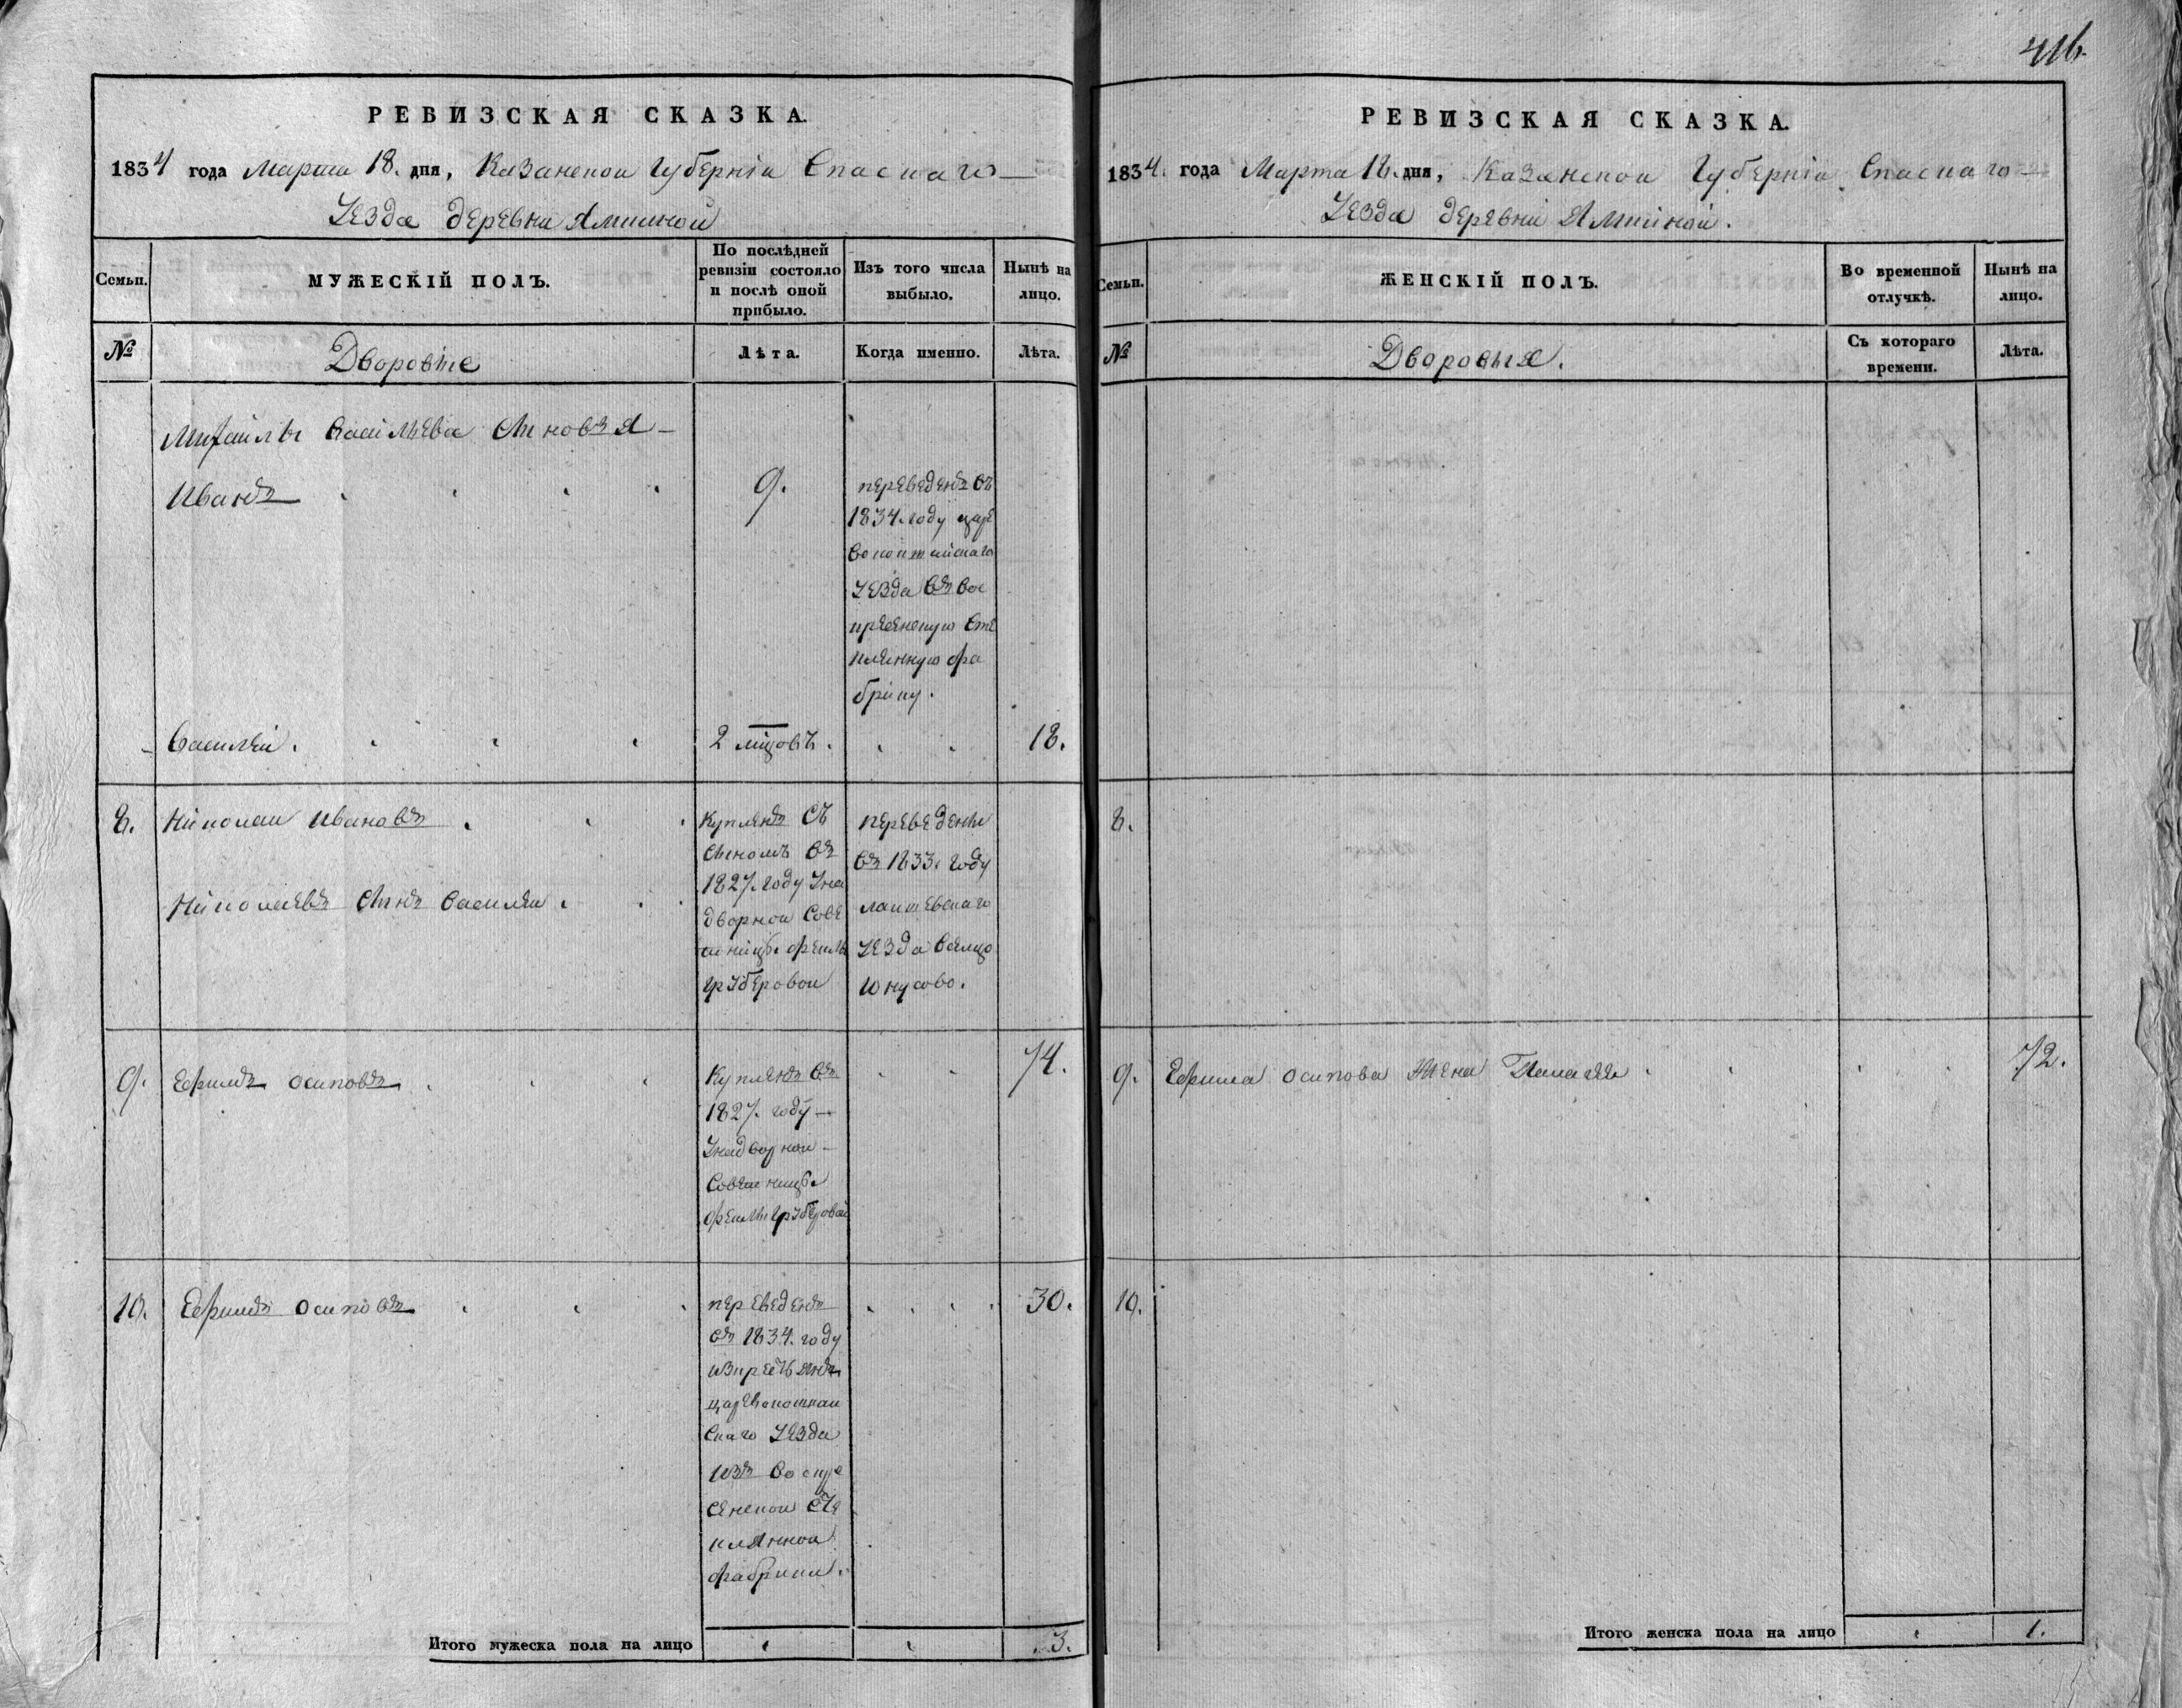 416.
РЕВИЗСКАЯ СКАЗКА.
1834 года Марта 18. дня, Казанской Губерніи Спаскаго
Уезда деревни Амииной
Семьи.
МУЖЕСКІЙ ПОЛЪ.
По послѣдней ревизіи состояло и послѣ оной прибыло.
Изъ того числа выбыло.
Нынѣ на лицо.
№
Дворовые
Лѣта.
Когда именно.
Лѣта.
Михайлы Васильева сыновья
Иванъ
9.
переведенъ въ
1834. году царе
вококшайскаго
уезда въ вос
кресенскую сте
клянную фа
брику.
Василей.
2 мцовъ.
18.
8. Николай Ивановъ
Николаевъ сынъ Василей
купленъ съ
сыномъ въ
1827. году уна
дворной сове
тницы фетлы
грӡберовой
переведены
въ 1833. году
лаишевскаго
уезда всельцо
юнусово.
9. Ефимъ Осиповъ
купленъ въ
1827. году
унадворной
советницы
74.
10. Ефимъ Осиповъ
переведенъ
въ 1834. году
изкрестьянъ
царевококшай
скаго уезда
изъ воскре
сенской сте
клянной
фабрики.
30.
Итого мужеска пола на лицо
3.
РЕВИЗСКАЯ СКАЗКА.
1834. года Марта 18. дня, Казанской Губерніи Спаскаго
Уезда деревни Амииной.
Семьи.
ЖЕНСКІЙ ПОЛЪ.
Во временной отлучкѣ.
Нынѣ на лицо.
№
Дворовыя.
Съ котораго времени.
Лѣта.
8.
9. Ефима Осипова жена Палагея
72.
10.
Итого женска пола на лицо
1.